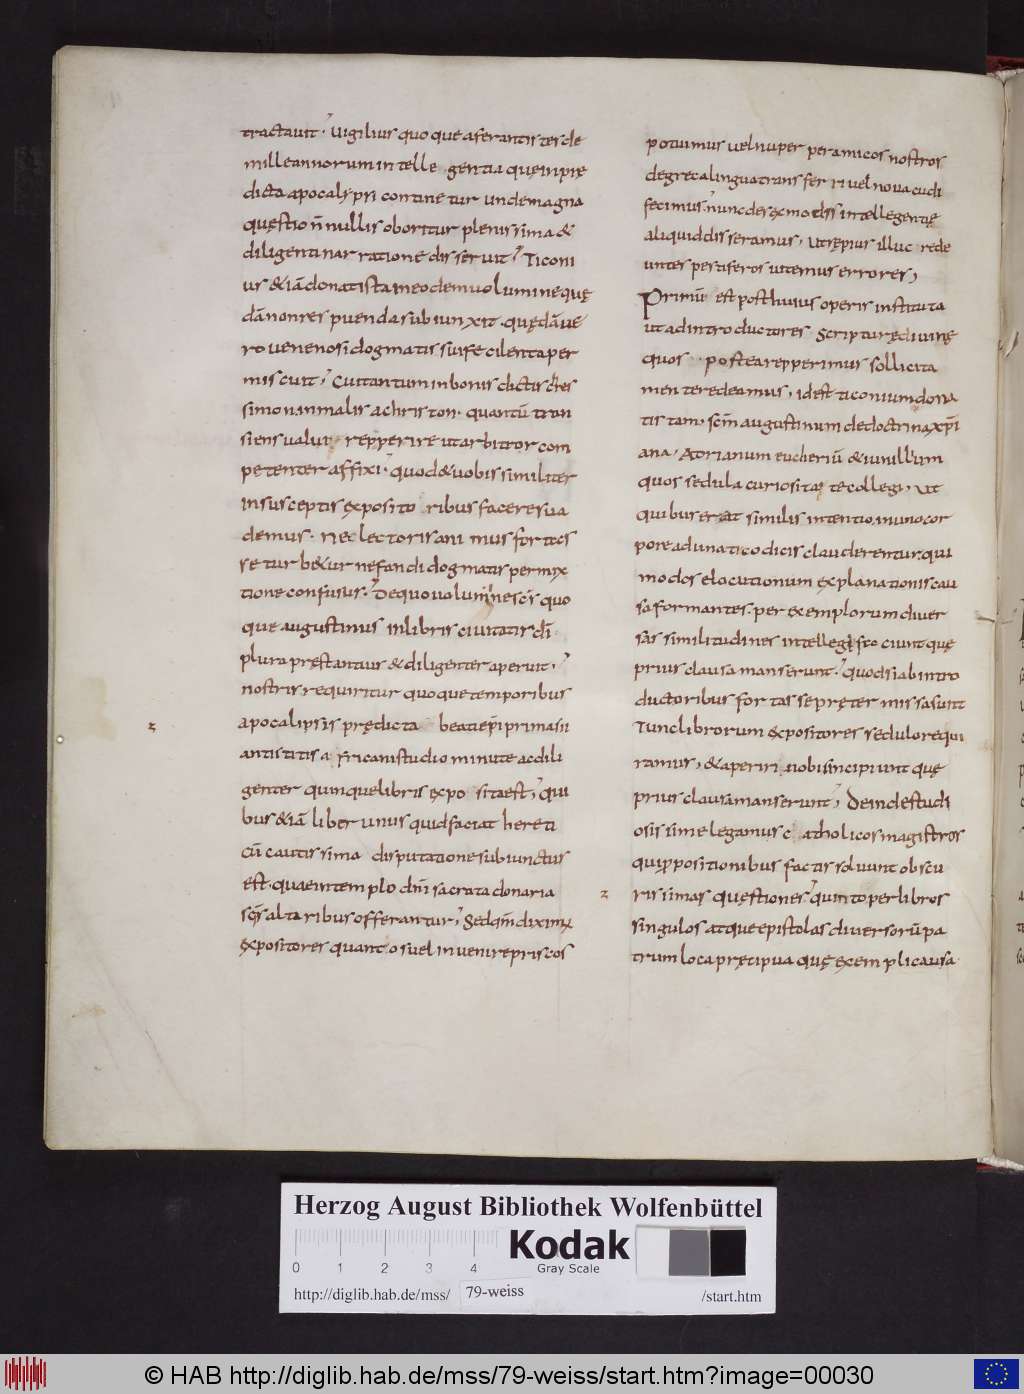 tractauit. Uigilius quoque afer antistes de
mille annorum intellegentia quę in prę
dicta apocalypsi continetur unde magna
quęstio n̄nullis oboritur plenissima &
diligenti narratione disseruit. Ticoni
us &iā donatista in eodem uolumine quę
dā non respuenda subiunxit. quędā ue
ro uenenosi dogmatis sui fecilenta per
miscuit. Cui tantum in bonis dictis chres
simon in malis achriston. quantū tran
siens ualui repperire ut arbitror com
petenter affixi. quod & uobis similiter
in susceptis expositoribus facere sua
demus. Nec lectoris animus fortas
setur be&ur nefandi dogmatis permix
tione confusus. De quo uolumine sc̄s quo
que augustinus in libris ciuitatis dī.
plura pręstantius & diligenter aperuit.
nostris requiritur quoque temporibus
apocalipsis prędicta beati ep̄i primasii
antistitis africani studio minute ac dili
genter quinque libris expositaest. qui
bus &iā liber unus quid faciat hereti
cū cautissima disputatione subiunctus
est. quae in templo dn̄i sacrata donaria
sc̄is altaribus offerantur. Sed qm̄ diximus
expositores quantos uel inuenire priscos
potuimus uel nuper per amicos nostros
de greca lingua transferri uel noua cudi
fecimus. nunc de sex modis intellegentię
aliquid disseramus. Ut sępius illuc rede
untes pestiferos uitemus errores,
Primū est post huius operis instituta
ut ad introductores scripturę diuinę
quos postea repperimus sollicita
mente redeamus, id est ticonium dona
tistam, sc̄m augustinum de doctrina xp̄i
ana, Adrianum eucheriū & iunillum
quos sedula curiositate collegi, ut
quibus erat similis intentio, in uno cor
pore adunati codicis clauderentur qui
modos elocutionum explanationis cau
sa formantes. per exemplorum diuer
sas similitudines intellegi faciunt quę
prius clausa manserunt. quod si ab intro
ductoribus fortasse pręter missa sunt
Tunc librorum expositores sedulo requi
ramus, & aperiri nobis incipiunt quę
prius clausa manserunt, Deinde studi
osissime legamus catholicos magistros
qui ppositionibus factis soluunt obscu
rissimas quęstiones. quinto per libros
singulos atque epistolas diuersorū pa
trum loca pręcipua quę exempli causa
z
z
Herzog August Bibliothek Wolfenbüttel
0 1 2 3 4
Kodak
Gray Scale
http://diglib.hab.de/mss/ 79-weiss /start.htm
© HAB http://diglib.hab.de/mss/79-weiss/start.htm?image=00030